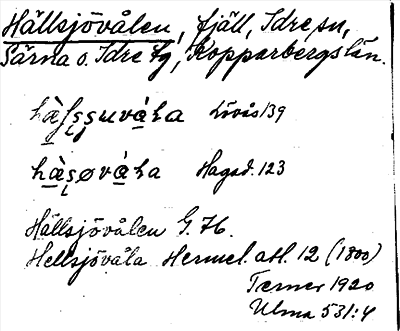 Hällsjövålen, fjäll, Idre sn,
Särna o. Idre tg, Kopparbergs län.
hàļșșuváła Lövås 139
hàșøváła Hagsd. 123
Hällsjövålen G. 76.
Hellsjövåla Hermel. atl. 12 (1800)
Terner 1920
Ulma 531:4